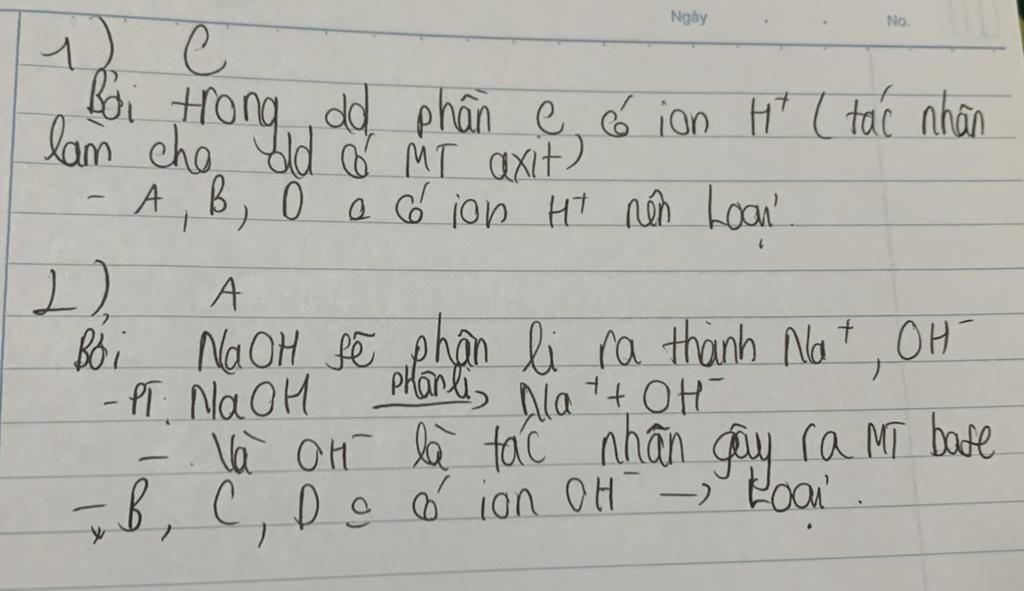 Ngày . . No.
1) C
Bởi trong dd phần C, có ion H⁺ (tác nhân
làm cho dd có MT axit)
- A, B, D o có ion H⁺ nên Loại.
2) A
Bởi NaOH sẽ phân li ra thành Na⁺, OH⁻
- PT: NaOH phân li → Na⁺ + OH⁻
- Và OH⁻ là tác nhân gây ra MT base
- B, C, D o có ion OH⁻ → Loại.